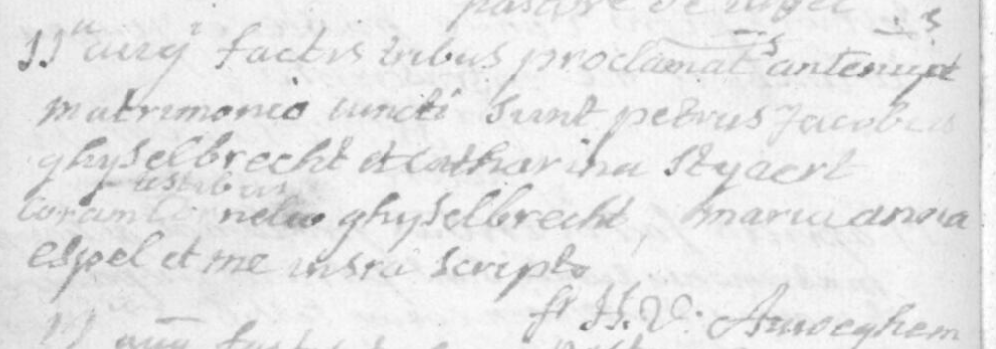 pastore de
11ª augⁱ factis tribus proclamatˢ antenuptˢ
matrimonio iuncti sunt petrus Jacobus
ghyselbrecht et catharina Styaert
testibus
coram Cornelio ghyselbrecht, maria anna
espel et me infra scripto
fr H. V. Auweghem
11 aug factis